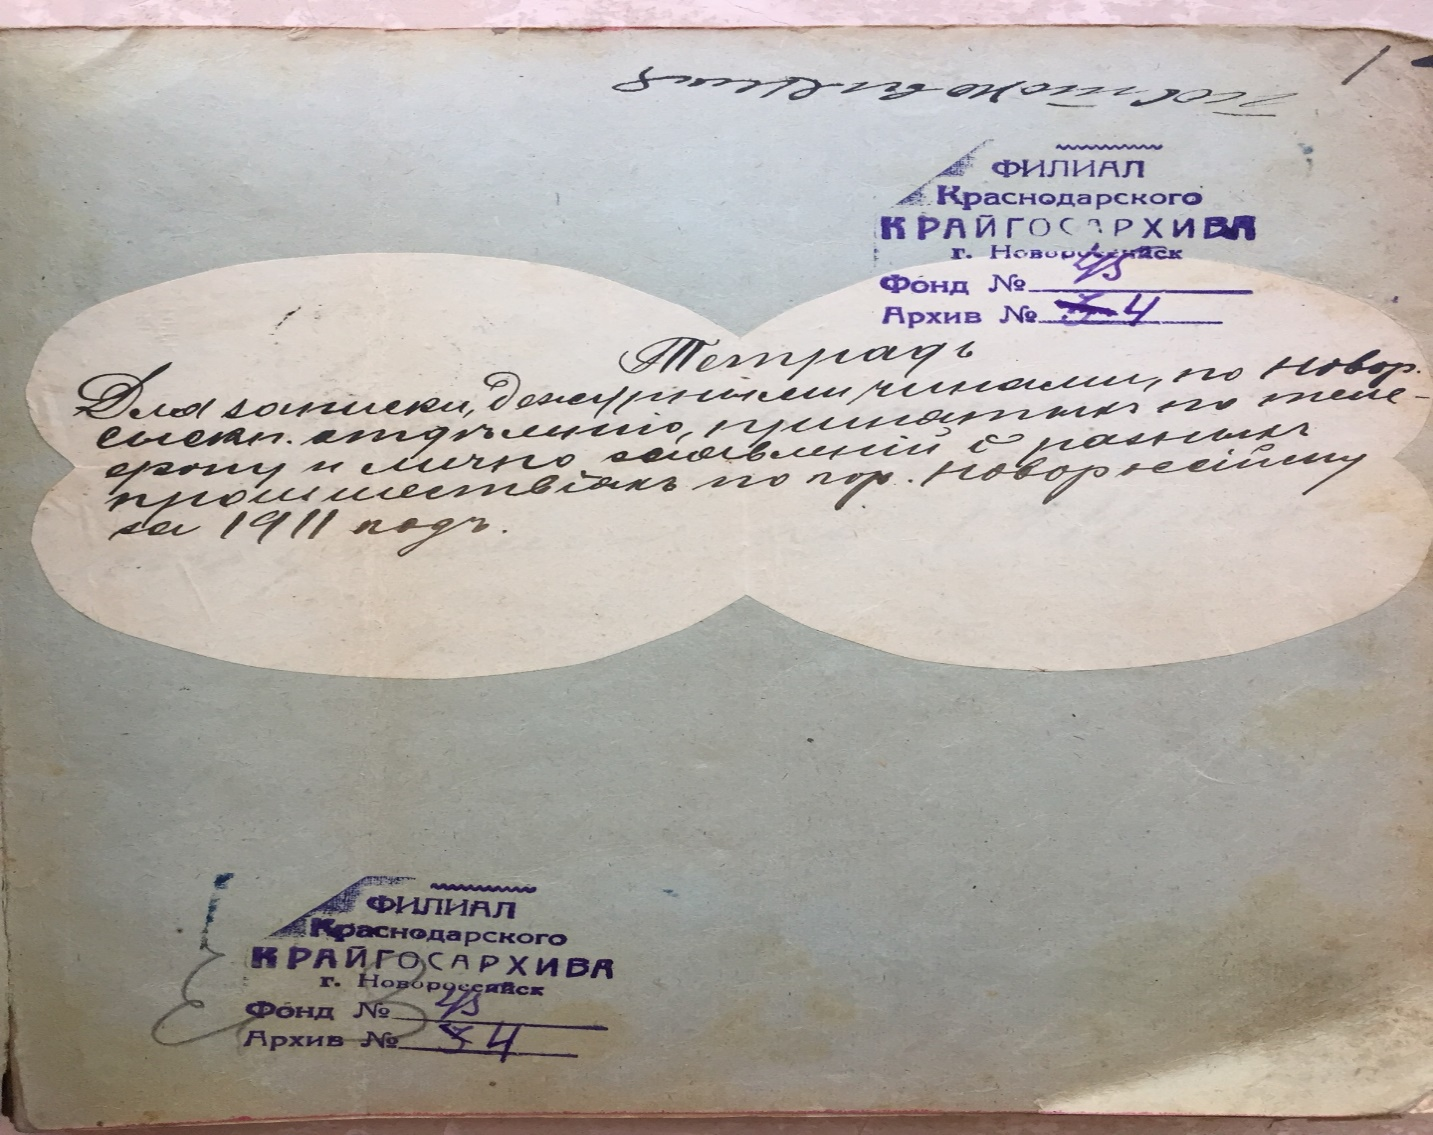 1
ФИЛИАЛ
Краснодарского
КРАЙГОСАРХИВА
г. Новороссийск
Фонд № 45
Архив № 4
Тетрадь
Для записки, дежурными чинами, по Новор.
сыскн. отдѣленію, принятыхъ по теле-
фону и лично заявленій о разныхъ
происшествіяхъ по гор. Новороссійску
за 1911 годъ.
ФИЛИАЛ
Краснодарского
КРАЙГОСАРХИВА
г. Новороссийск
Фонд № 45
Архив № 4